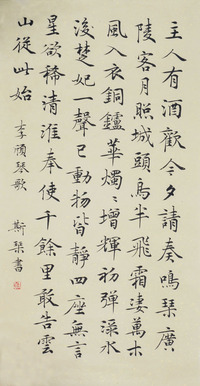 主人有酒歡今夕請奏鳴琹廣
陵客月照城頭烏半飛霜淒萬木
風入衣銅鑪華燭〻增輝初彈淥水
後楚妃一聲已動物皆靜四座無言
星欲稀清淮奉使千餘里敢告雲
山從此始 李頎琴歌 斯琹書